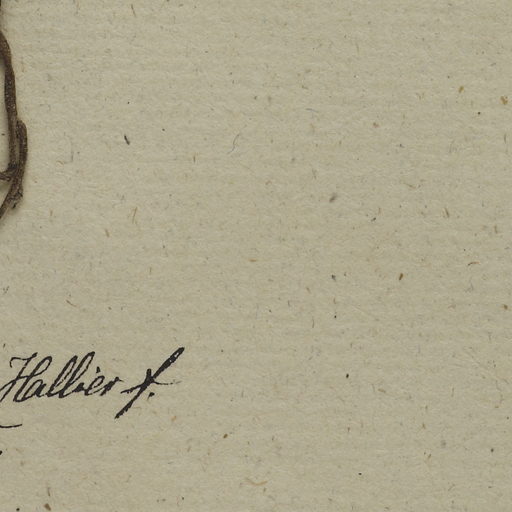 Hallier f.